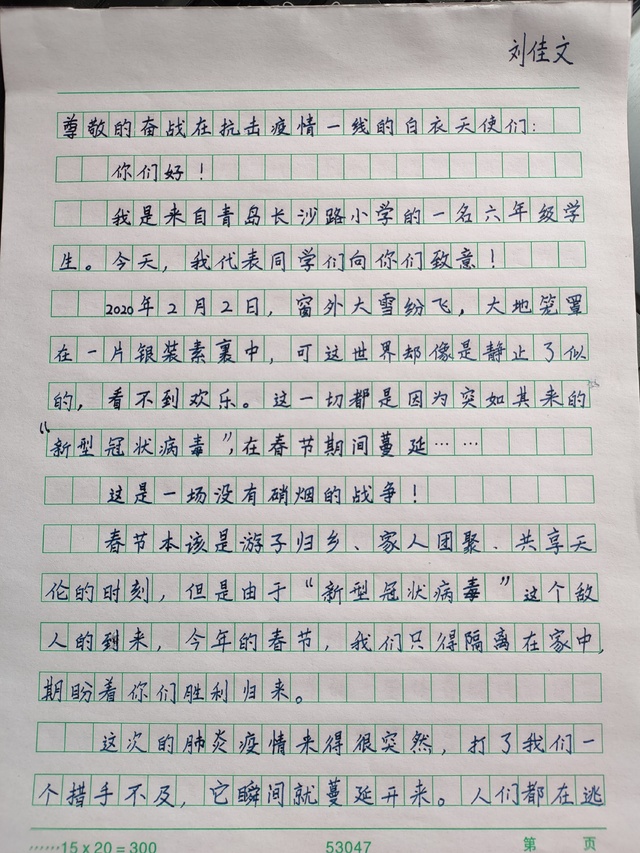 刘佳文
尊敬的奋战在抗击疫情一线的白衣天使们：
你们好！
我是来自青岛长沙路小学的一名六年级学
生。今天，我代表同学们向你们致意！
2020年2月2日，窗外大雪纷飞，大地笼罩
在一片银装素裹中，可这世界却像是静止了似
的，看不到欢乐。这一切都是因为突如其来的
“新型冠状病毒”，在春节期间蔓延……
这是一场没有硝烟的战争！
春节本该是游子归乡、家人团聚、共享天
伦的时刻，但是由于“新型冠状病毒”这个敌
人的到来，今年的春节，我们只得隔离在家中，
期盼着你们胜利归来。
这次的肺炎疫情来得很突然，打了我们一
个措手不及，它瞬间就蔓延开来。人们都在逃
……15×20=300 53047 第 页